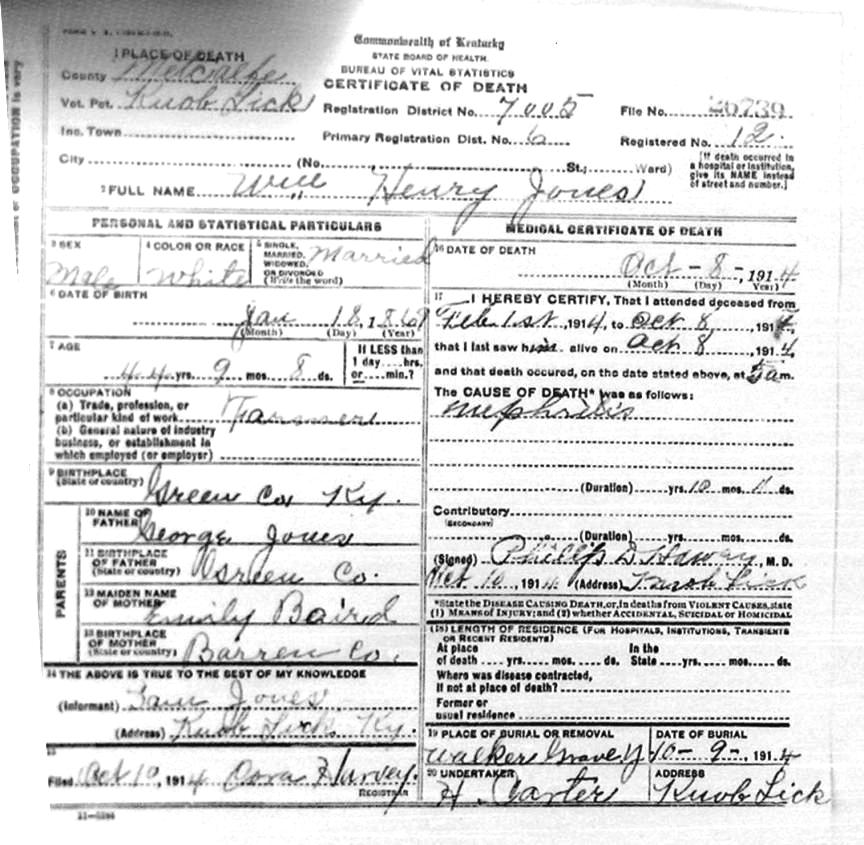 1 PLACE OF DEATH
County Metcalfe
Vot. Pct. Knob Lick
Inc. Town
City (No. St.; Ward)
Commonwealth of Kentucky
STATE BOARD OF HEALTH.
BUREAU OF VITAL STATISTICS
CERTIFICATE OF DEATH
Registration District No. 7005
Primary Registration Dist. No. 6
File No. 26739
Registered No. 12
[If death occurred in
a hospital or institution,
give its NAME instead
of street and number.]
2 FULL NAME Will Henry Jones
OCCUPATION is very
PERSONAL AND STATISTICAL PARTICULARS
3 SEX
Male
4 COLOR OR RACE
White
5 SINGLE,
MARRIED,
WIDOWED,
OR DIVORCED
(Write the word)
Married
6 DATE OF BIRTH
Jan 18, 1869
(Month) (Day) (Year)
7 AGE
44 yrs. 9 mos. 8 ds.
If LESS than
1 day hrs.
or min.?
8 OCCUPATION
(a) Trade, profession, or
particular kind of work Farmer
(b) General nature of industry
business, or establishment in
which employed (or employer)
9 BIRTHPLACE
(State or country) Green Co Ky.
PARENTS
10 NAME OF
FATHER George Jones
11 BIRTHPLACE
OF FATHER
(State or country) Green Co.
12 MAIDEN NAME
OF MOTHER Emily Baird
13 BIRTHPLACE
OF MOTHER
(State or country) Barren Co.
14 THE ABOVE IS TRUE TO THE BEST OF MY KNOWLEDGE
(Informant) Sam Jones
(Address) Knob Lick Ky.
15
Filed Oct 10, 1914 Cora Harvey
REGISTRAR
MEDICAL CERTIFICATE OF DEATH
16 DATE OF DEATH
Oct - 8 -, 1914
(Month) (Day) (Year)
17 I HEREBY CERTIFY, That I attended deceased from
Feb 1st, 1914, to Oct 8, 1914,
that I last saw him alive on Oct 8, 1914,
and that death occured, on the date stated above, at 5 am.
The CAUSE OF DEATH* was as follows:
nephritis
(Duration) yrs. 10 mos. 11 ds.
Contributory
(SECONDARY)
(Duration) yrs. mos. ds.
(Signed) Phillip D., M.D.
Oct 10, 1914 (Address) Knob Lick
*State the DISEASE CAUSING DEATH, or, in deaths from VIOLENT CAUSES, state
(1) MEANS OF INJURY; and (2) whether ACCIDENTAL, SUICIDAL or HOMICIDAL
(18) LENGTH OF RESIDENCE (FOR HOSPITALS, INSTITUTIONS, TRANSIENTS
OR RECENT RESIDENTS)
At place In the
of death yrs. mos. ds. State yrs. mos. ds.
Where was disease contracted,
If not at place of death?
Former or
usual residence
19 PLACE OF BURIAL OR REMOVAL
Walker Gravey
DATE OF BURIAL
10 - 9 -, 1914
20 UNDERTAKER
H. Carter
ADDRESS
Knob Lick